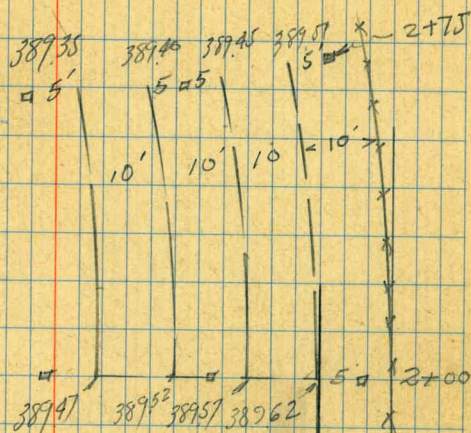 2+75
389.35 389.40 389.45 389.57
5' 5 5 5'
10' 10' 10 10'
5 2+00
389.47 389.52 389.57 389.62